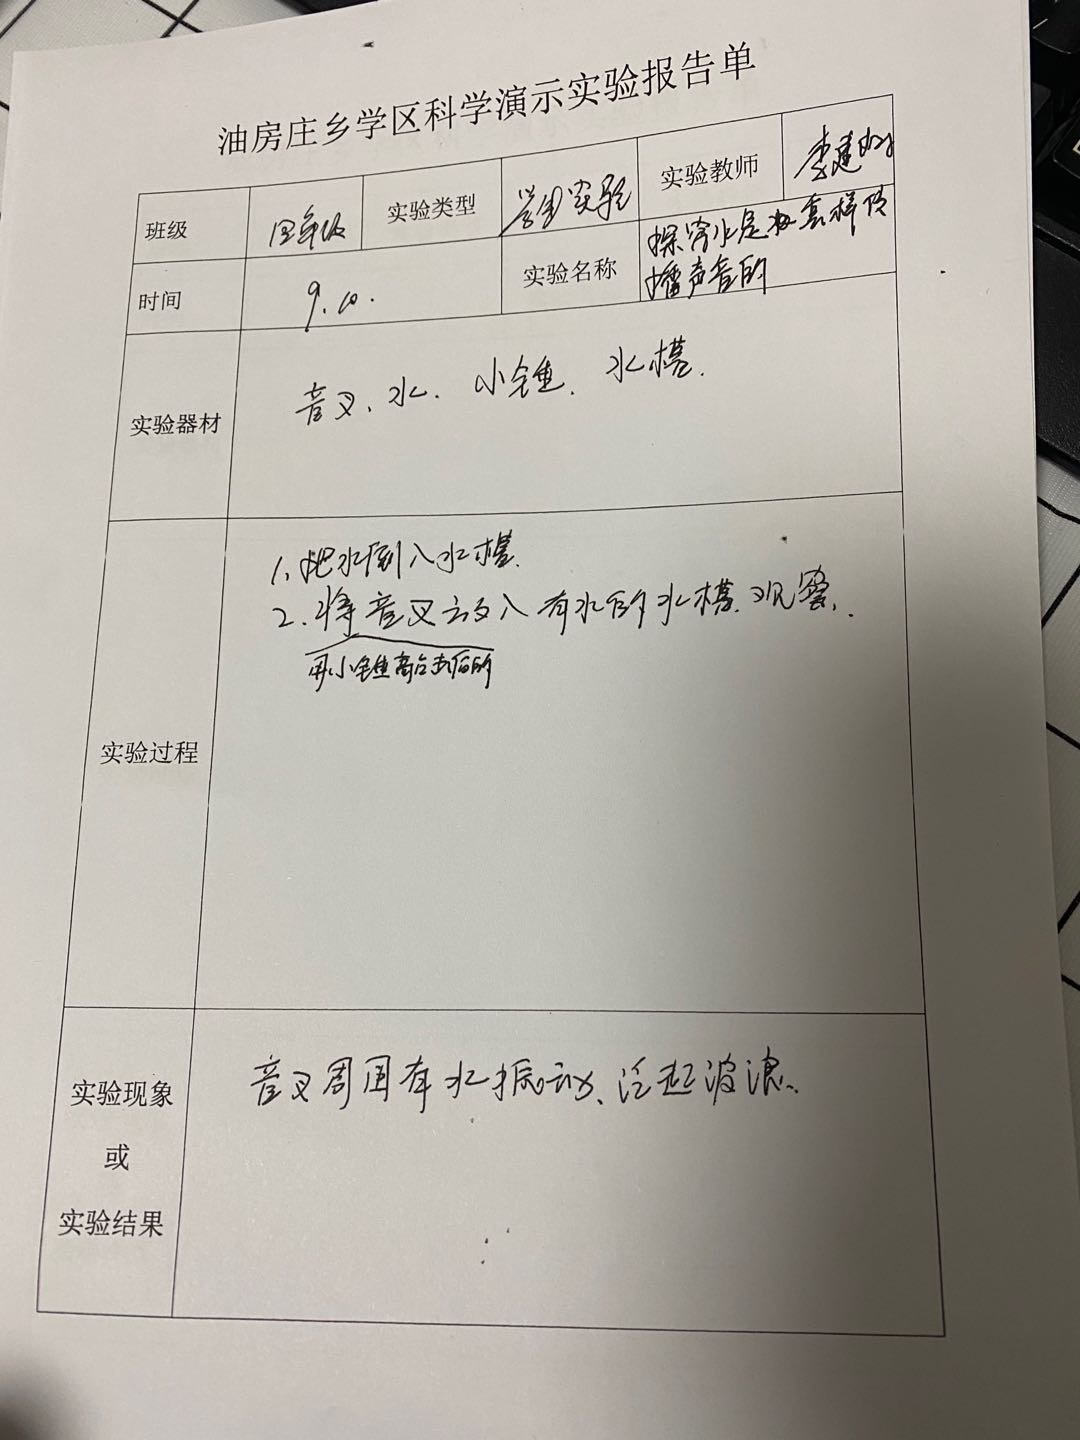 油房庄乡学区科学演示实验报告单
班级 四年级 实验类型 学生实验 实验教师 李建
时间 9.10. 实验名称 探究水是怎样传
播声音的
实验器材 音叉、水、小锤、水槽.
1、把水倒入水槽.
2.将音叉放入有水的水槽、观察.
用小锤敲击后的
实验过程
音叉周围有水振动、泛起波浪.
实验现象
或
实验结果